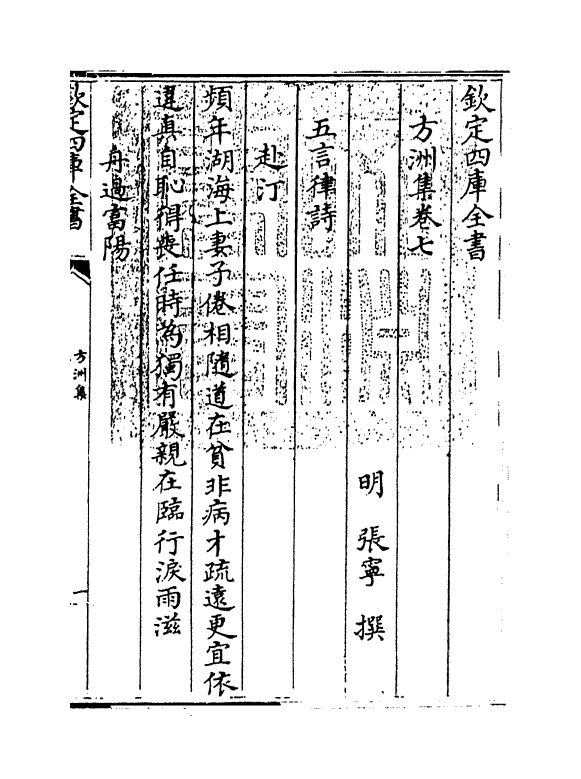 欽定四庫全書
方洲集卷七
明 張寧 撰
五言律詩
赴汀
頻年湖海上妻子倦相隨道在貧非病才疏遠更宜依
違真自恥得喪任時為獨有嚴親在臨行淚雨滋
舟過富陽
欽定四庫全書
方洲集
一